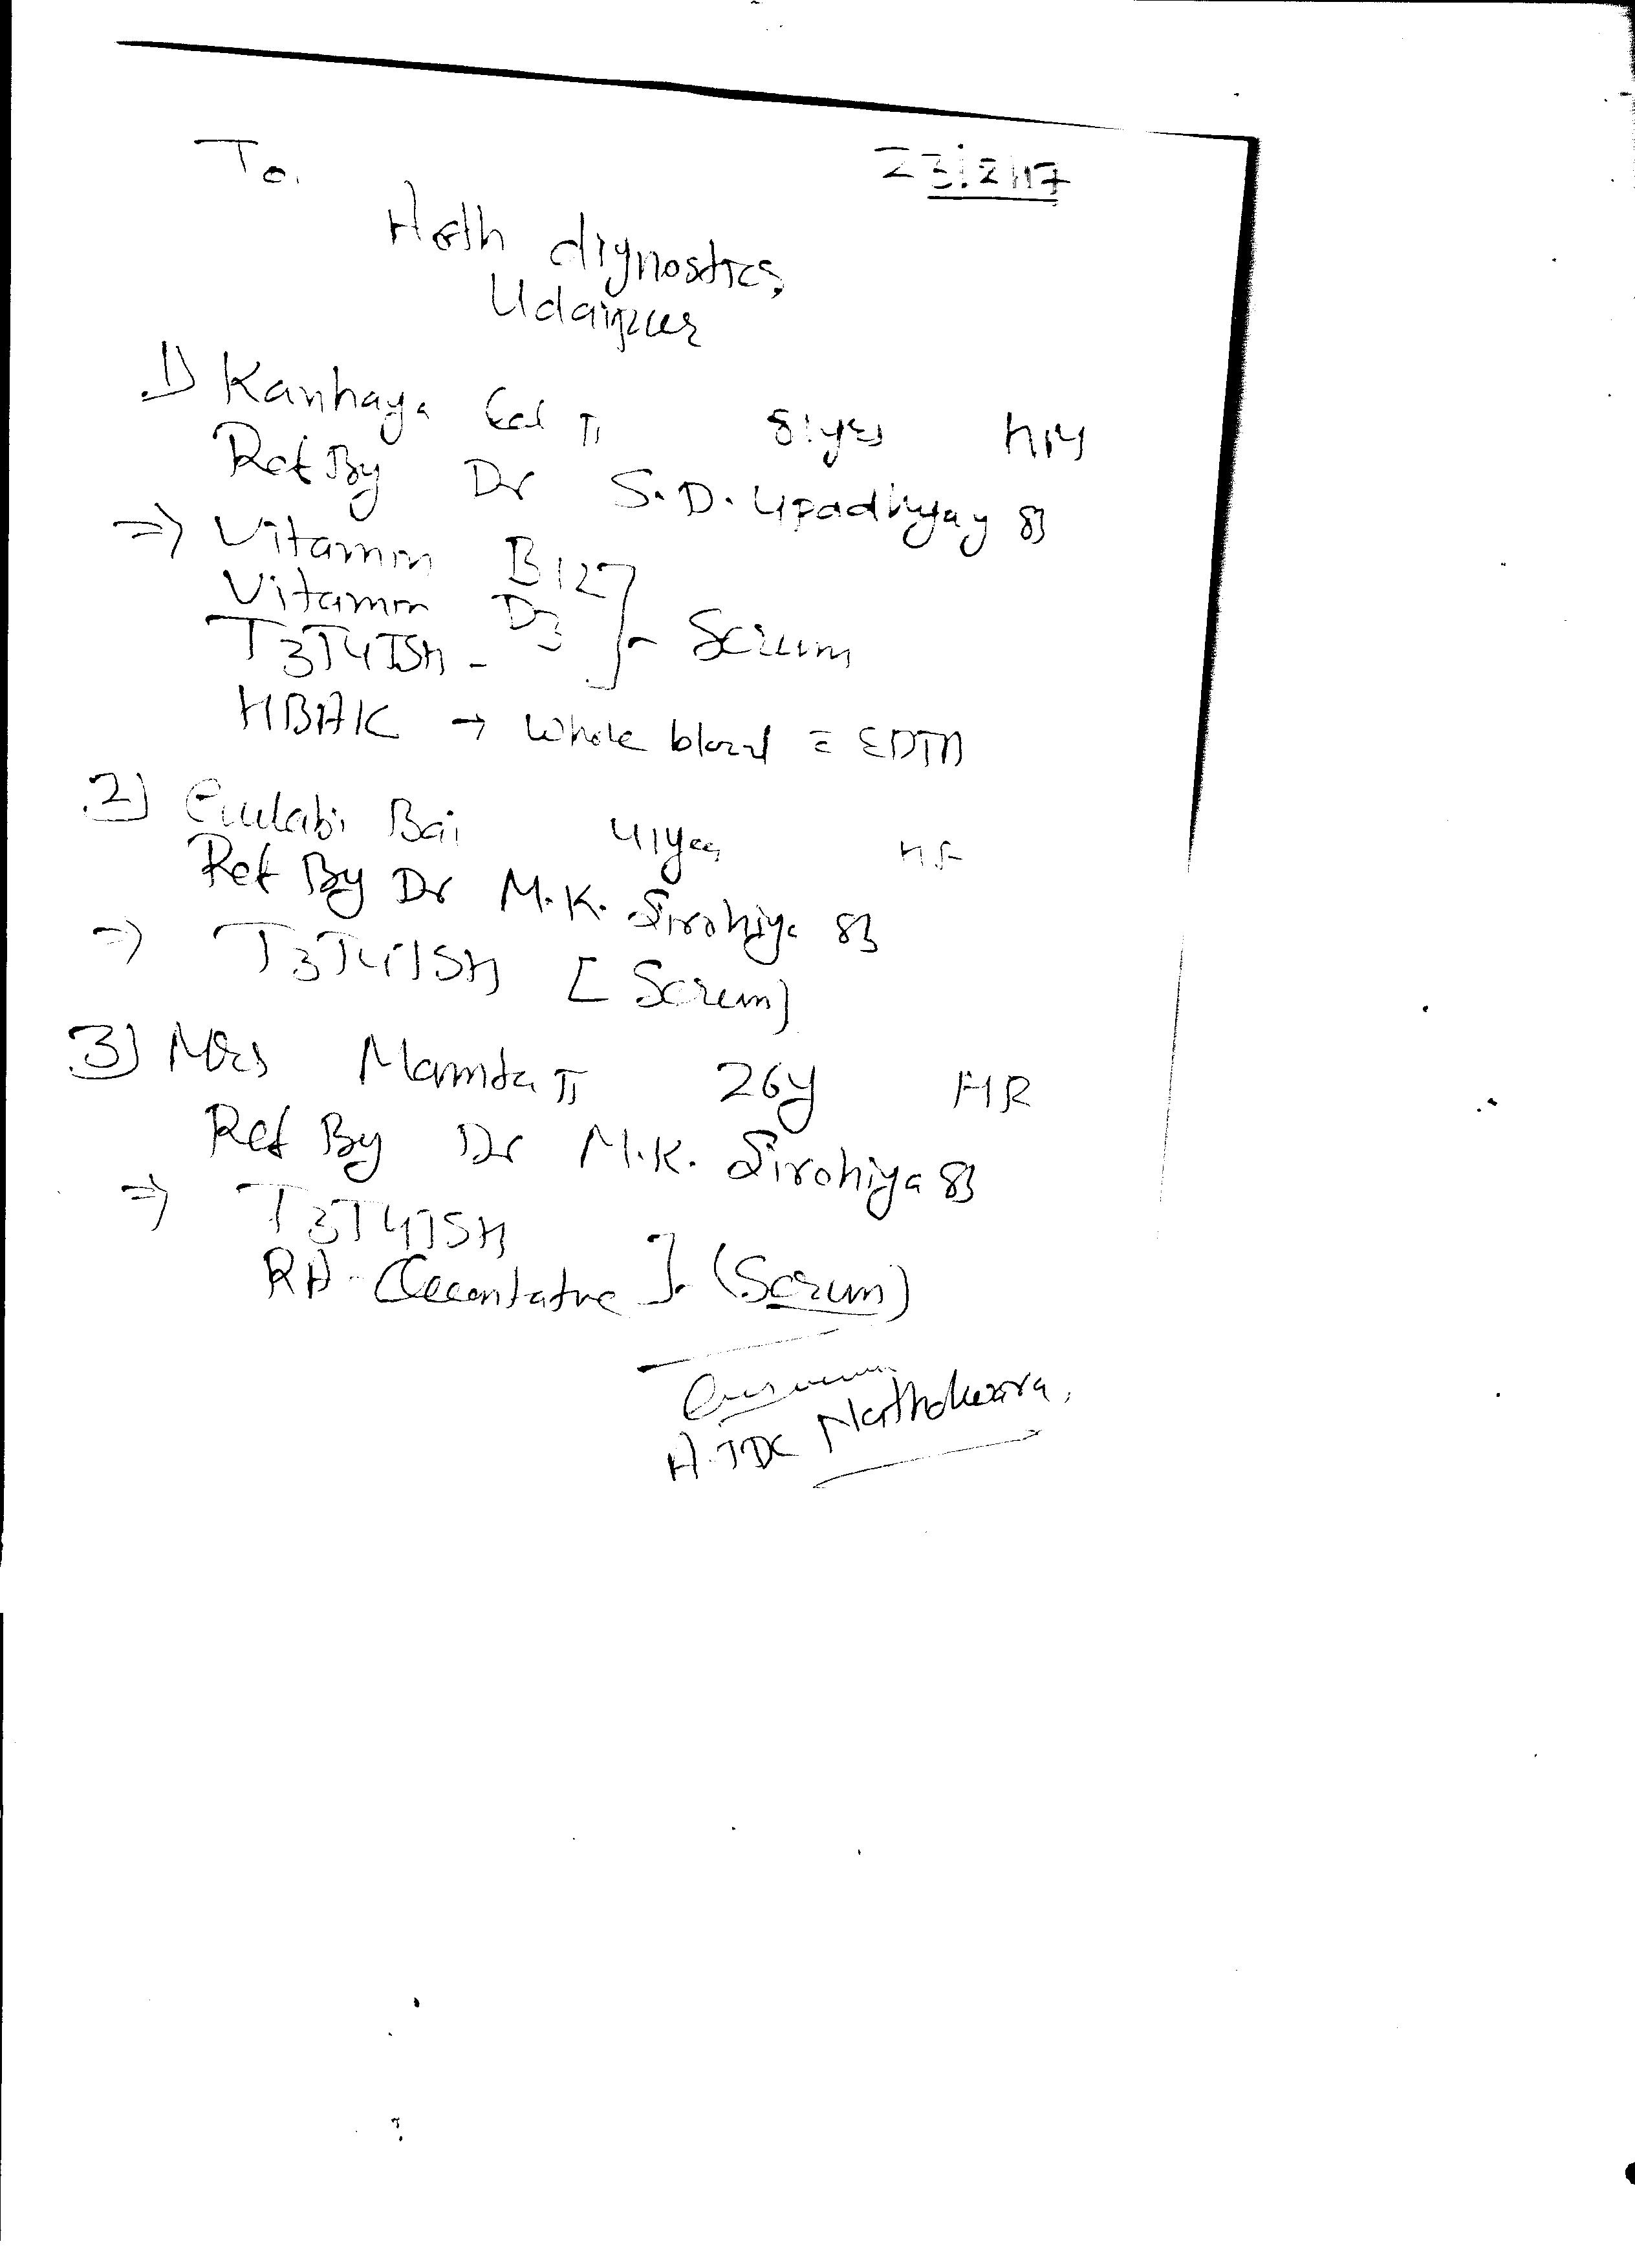 To. 23/2/17
Arth diagnostics,
Udaipur
1) Kanhaya Lal Ji 81yrs
Ref By Dr S.D. Upadhyay
=> Vitamin B12
Vitamin D3
T3T4TSH - ] - Serum
HBA1C → Whole blood = EDTA
2) Gulabi Bai 41yrs
Ref By Dr M.K. Sirohiya
=> T3T4TSH [Serum]
3) Mrs Mamta Ji 26y
Ref By Dr M.K. Sirohiya
=> T3T4TSH
RA - Quantative ] - (Serum)
Nathdwara,